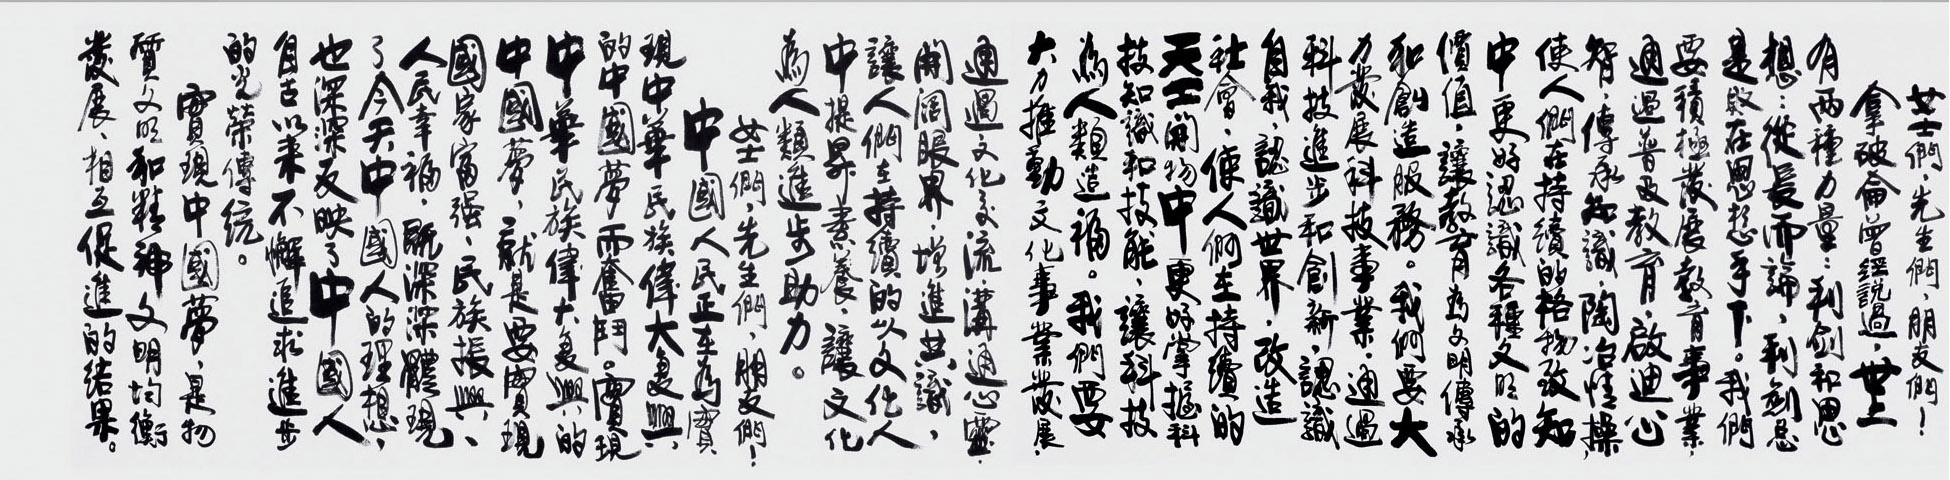 女士們，先生們，朋友們！
拿破侖曾經說過，世上
有兩種力量：利劍和思
想；從長而論，利劍總
是敗在思想手下。我們
要積極發展教育事業，
通過普及教育，啟迪心
智，傳承知識，陶冶情操，
使人們在持續的格物致知
中更好認識各種文明的
價值，讓教育為文明傳承
和創造服務。我們要大
力發展科技事業，通過
科技進步和創新，認識
自我，認識世界，改造
社會，使人們在持續的
天工開物中更好掌握科
技知識和技能，讓科技
為人類造福。我們要
大力推動文化事業發展，
通過文化交流，溝通心靈，
開闊眼界，增進共識，
讓人們在持續的以文化人
中提昇素養，讓文化
為人類進步助力。
女士們，先生們，朋友們！
中國人民正在為實
現中華民族偉大復興
的中國夢而奮鬥。實現
中華民族偉大復興的
中國夢，就是要實現
國家富强、民族振興、
人民幸福，既深深體現
了今天中國人的理想，
也深深反映了中國人
自古以來不懈追求進步
的光榮傳統。
實現中國夢，是物
質文明和精神文明均衡
發展、相互促進的結果。